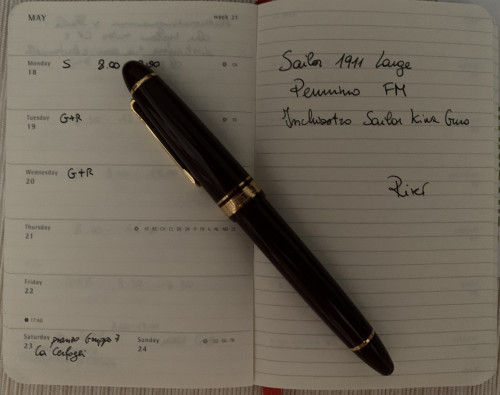 MAY
week 21
Monday
18
S 8.00
Tuesday
19
G+R
Wednesday
20
G+R
Thursday
21
Friday
22
Saturday
23
pranzo Gruppo 7
Ca'
Sunday
24
Sailor 1911 Large
Pennino FM
Inchiostro Sailor Kiwa Guro
River